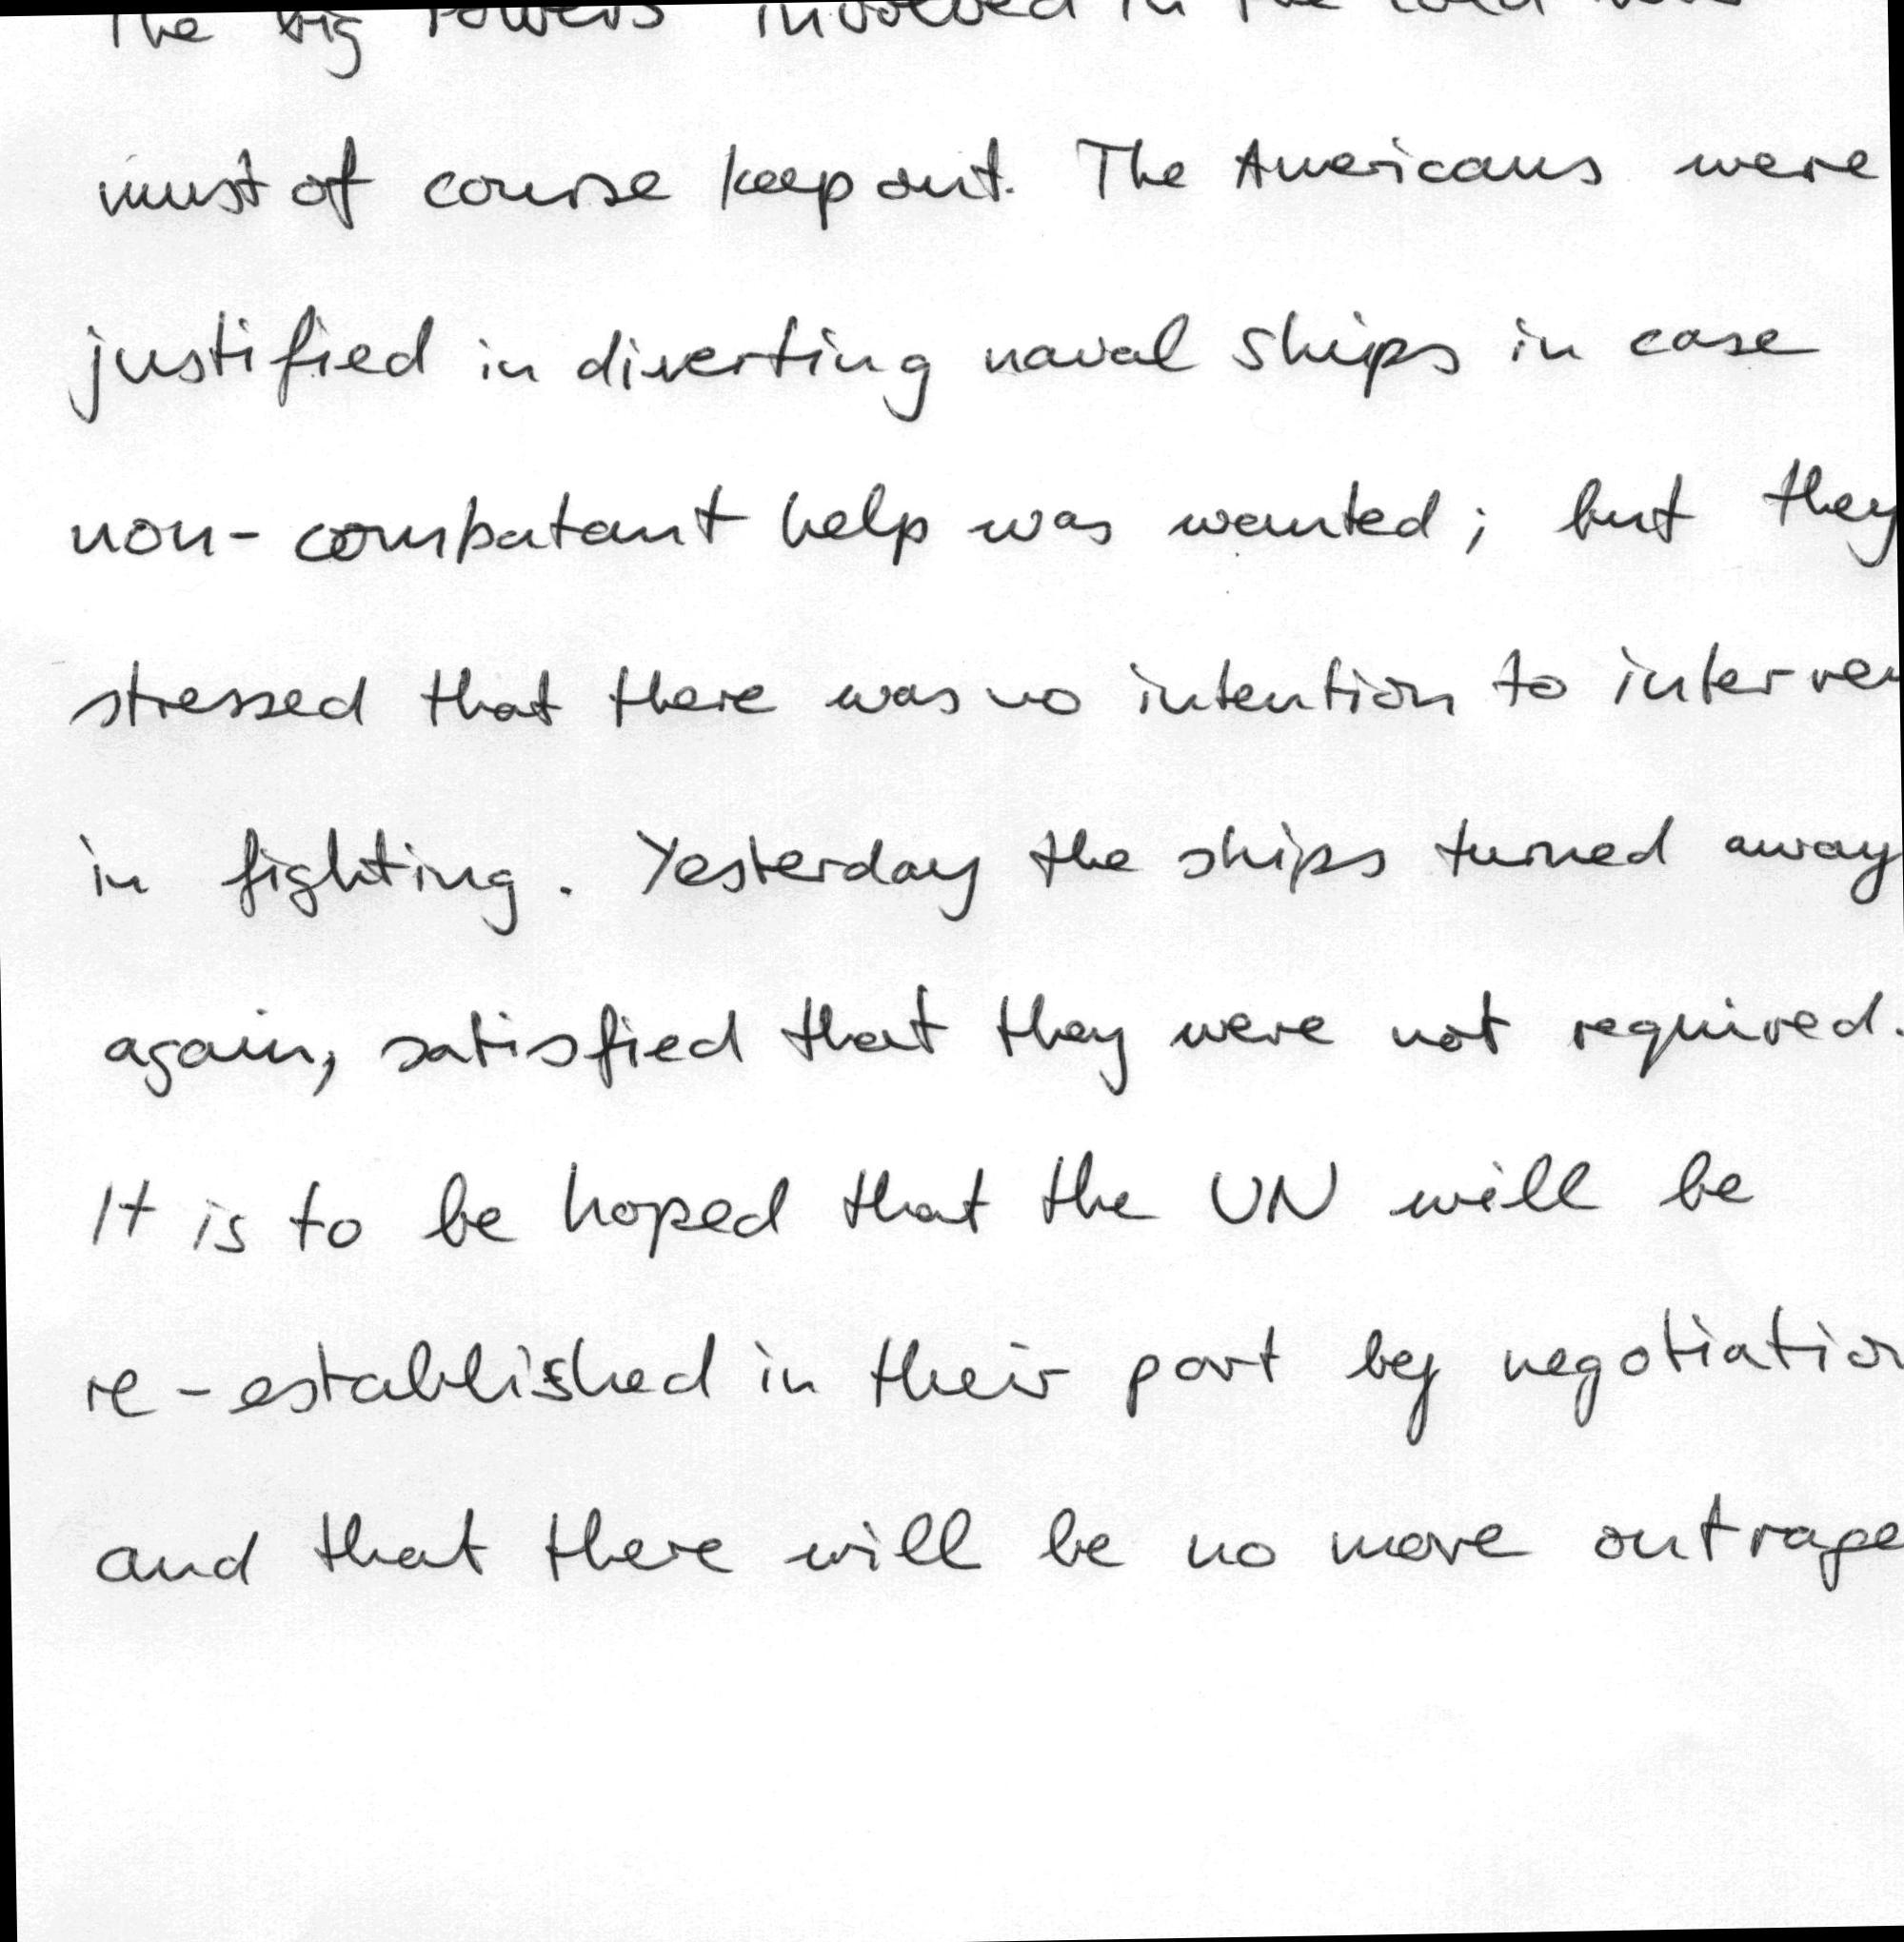 The big Powers involved in the cold war
must of course keep out. The Americans were
justified in diverting naval ships in case
non-combatant help was wanted; but they
stressed that there was no intention to interven
in fighting. Yesterday the ships turned away
again, satisfied that they were not required.
It is to be hoped that the UN will be
re-established in their port by negotiation
and that there will be no more outrage